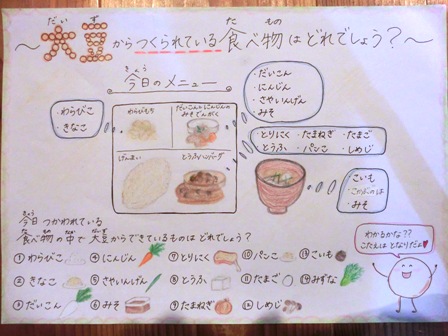 ～大豆からつくられている食べ物はどれでしょう？～
だいず
た もの
きょう
今日のメニュー
・わらびこ
・きなこ
わらびもち
だいこんとにんじんの
みそでんがく
げんまい
とうふハンバーグ
・だいこん
・にんじん
・さやいんげん
・みそ
・とりにく ・たまねぎ ・たまご
・とうふ ・パンこ ・しめじ
・こいも
・みそ
きょう
今日 つかわれている
た もの なか だいず
食べ物の中で大豆からできているものは どれでしょう？
①わらびこ ④にんじん ⑦とりにく ⑩パンこ ⑬こいも
②きなこ ⑤さやいんげん ⑧とうふ ⑪たまご ⑭みずな
③だいこん ⑥みそ ⑨たまねぎ ⑫しめじ
わかるかな？？
こたえは となりだよ♥